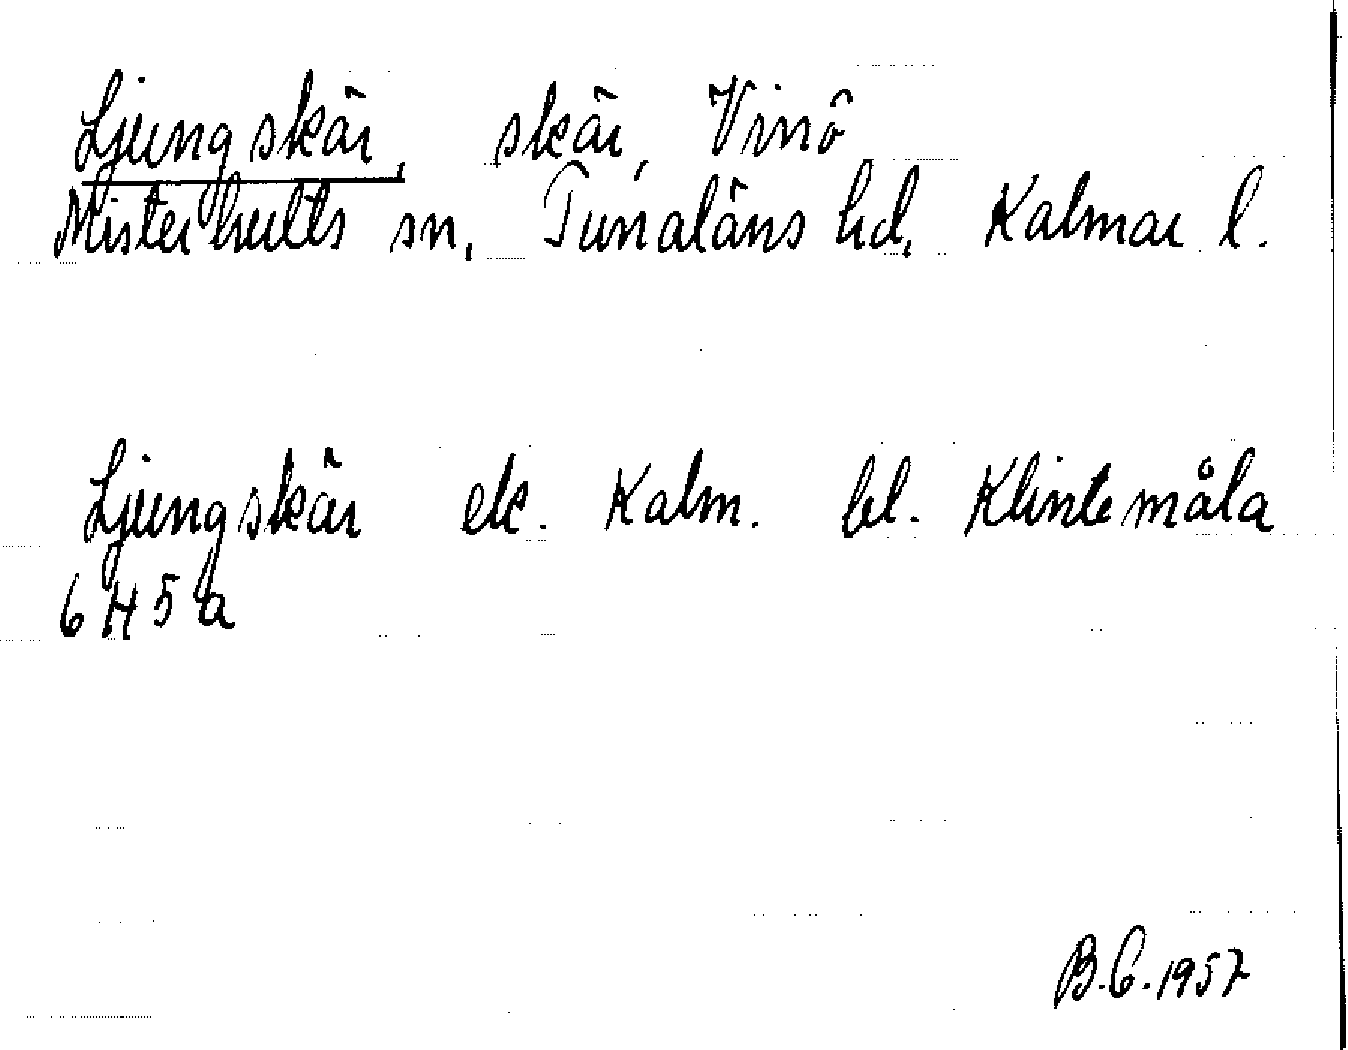 Ljungskär, skär, Vinö
Misterhults sn, Tunaläns hd, Kalmar l.
Ljungskär ek. Kalm. bl. Klintemåla
6 H 5 a
B.C. 1957